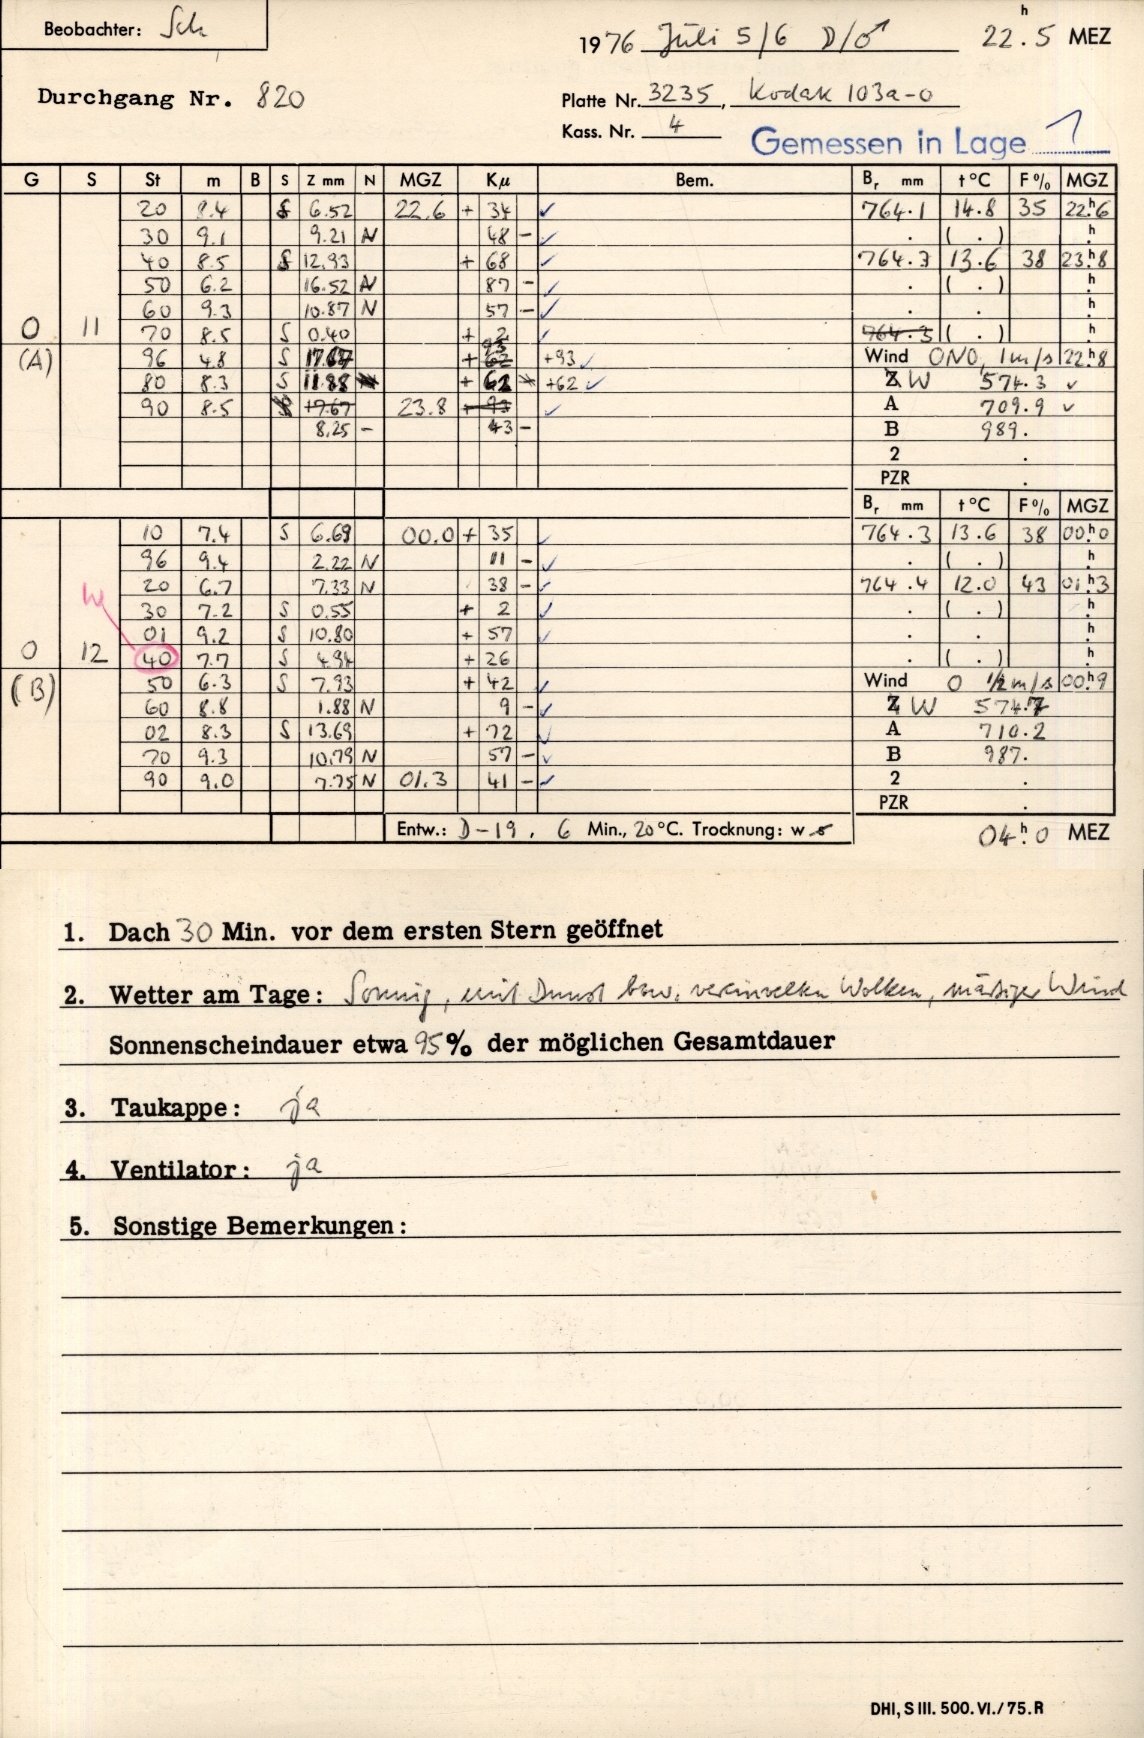 Beobachter: Sch
1976 Juli 5/6 D/♂ 22.h5 MEZ
Durchgang Nr. 820
Platte Nr. 3235, Kodak 103a-o
Kass. Nr. 4
Gemessen in Lage 1
G S St m B S Z mm N MGZ Kμ Bem. Br mm t°C F% MGZ
20 8.4 S 6.52 22.6 + 34 ✓ 764.1 14.8 35 22.h6
30 9.1 9.21 N 48 – ✓ . ( . ) .h
40 8.5 S 12.93 + 68 ✓ 764.3 13.6 38 23.h8
50 6.2 16.52 N 87 – ✓ . ( . ) .h
60 9.3 10.87 N 57 – ✓ . .h
0 11 70 8.5 S 0.40 + 2 ✓ 764.3 ( . ) .h
(A) 96 4.8 S 17.67 + 62 93 +93 ✓ Wind ONO, 1m/s 22.h8
80 8.3 S 11.88 + 62 +62 ✓ Z W 574.3 ✓
90 8.5 17.67 23.8 + 93 ✓ A 709.9 ✓
8.25 – 43 – B 989.
2 .
PZR .
Br mm t°C F% MGZ
10 7.4 S 6.69 00.0 + 35 ✓ 764.3 13.6 38 00.h0
96 9.4 2.22 N 11 – ✓ . ( . ) .h
20 6.7 7.33 N 38 – ✓ 764.4 12.0 43 01.h3
W 30 7.2 S 0.55 + 2 ✓ . ( . ) .h
01 9.2 S 10.80 + 57 ✓ . . .h
0 12 40 7.7 S 4.94 + 26 . ( . ) .h
(B) 50 6.3 S 7.93 + 42 ✓ Wind 0 ½m/s 00.h9
60 8.8 1.88 N 9 – ✓ Z W 574.7
02 8.3 S 13.69 + 72 ✓ A 710.2
70 9.3 10.79 N 57 – ✓ B 987.
90 9.0 7.75 N 01.3 41 – ✓ 2 .
PZR .
Entw.: D-19, 6 Min., 20°C. Trocknung: w s 04.h0 MEZ
1. Dach 30 Min. vor dem ersten Stern geöffnet
2. Wetter am Tage: Sonnig, mit Dunst bzw. vereinzelten Wolken, mäßiger Wind
Sonnenscheindauer etwa 95% der möglichen Gesamtdauer
3. Taukappe: ja
4. Ventilator: ja
5. Sonstige Bemerkungen:
DHI, S III. 500. VI./75. R